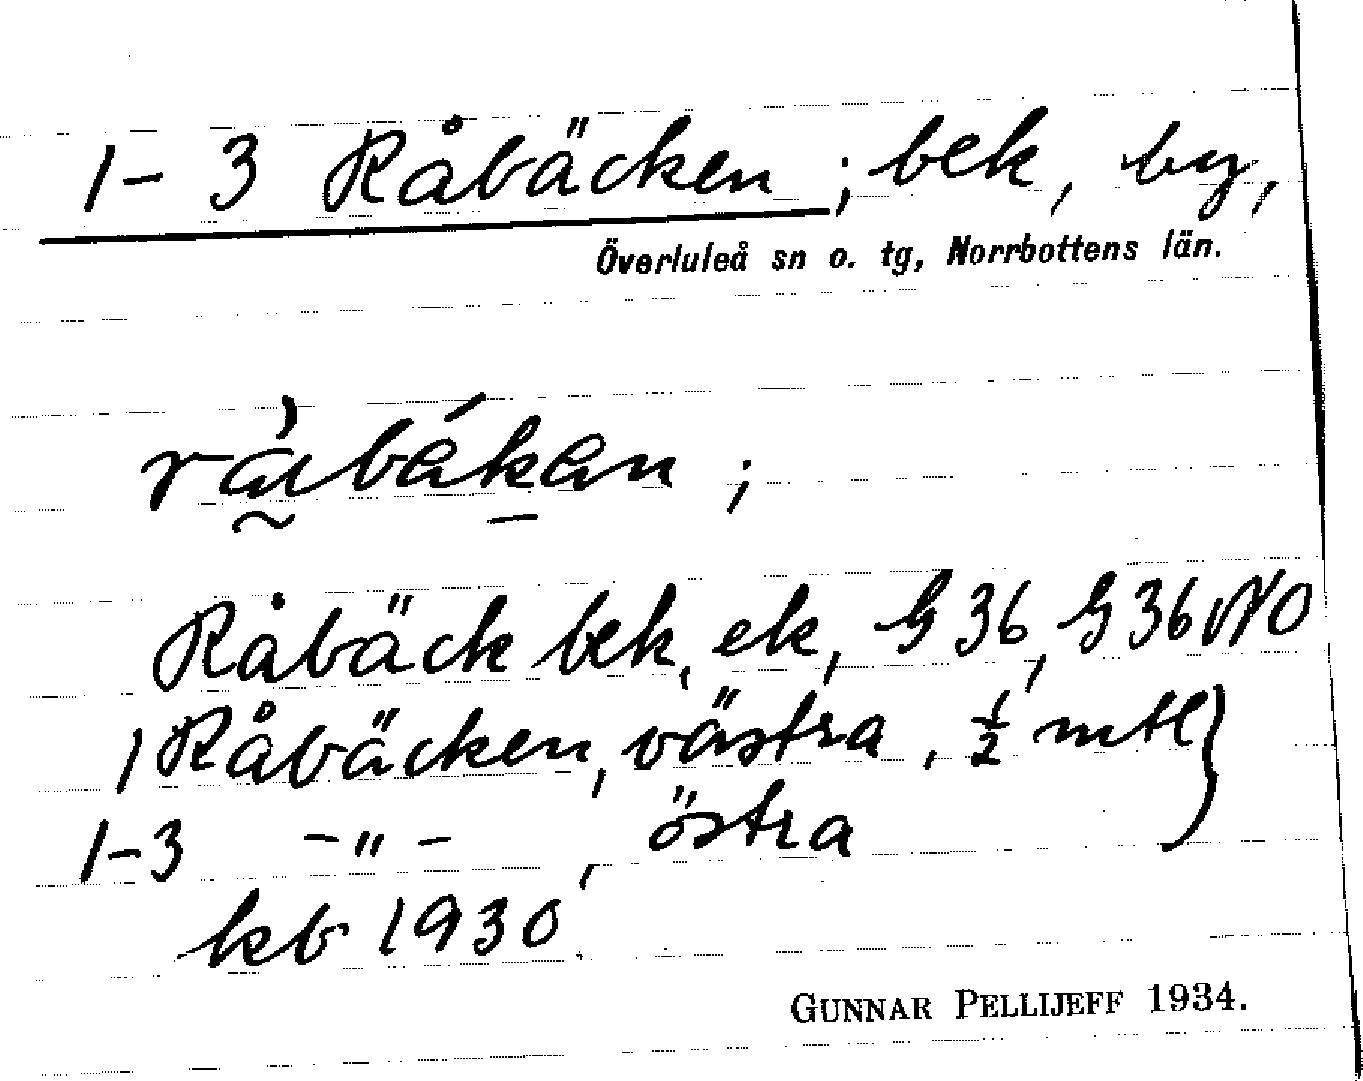 1-3 Råbäcken; bek, by,
Överluleå sn o. tg, Norrbottens län.
Råbäck bek, ek, G 36, G 36 NO
1 Råbäcken, västra, ½ mtl }
1-3 -"- , östra
kb 1930.
GUNNAR PELLIJEFF 1934.